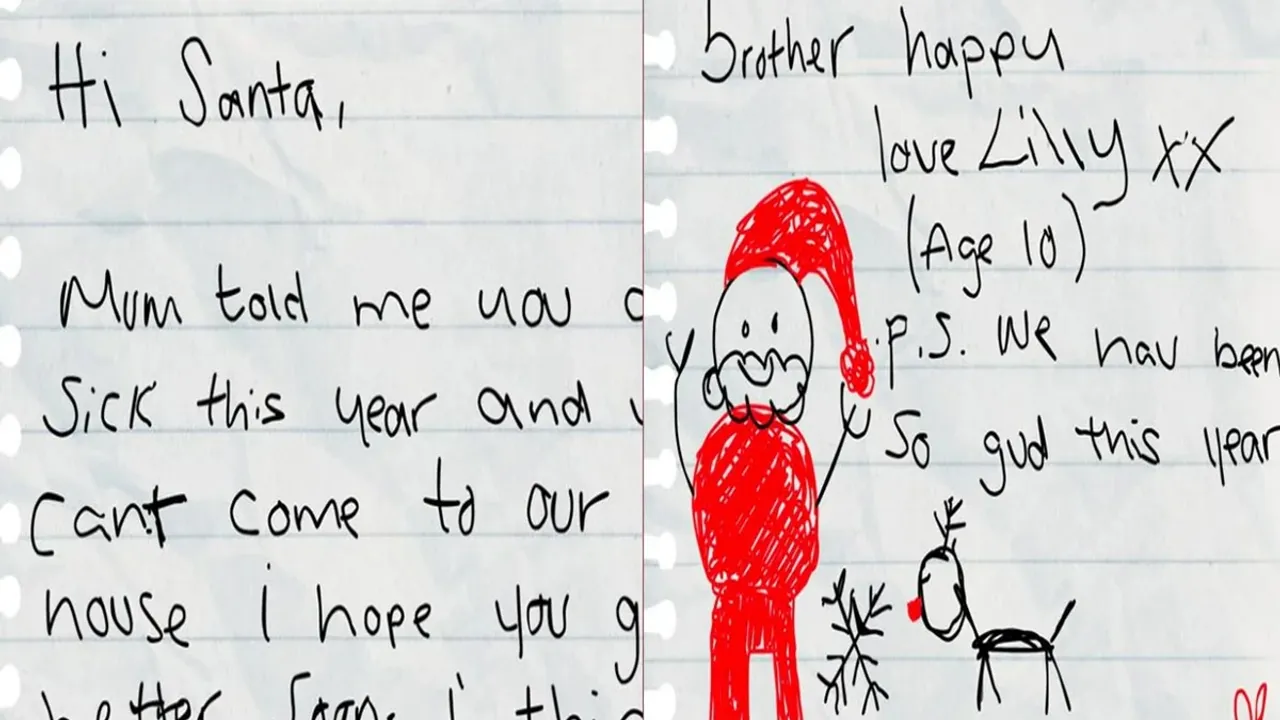 Hi Santa,
Mum told me you
Sick this year and
Can't come to our
house i hope you g
better Soon. i thi
brother happy
love Lilly xx
(Age 10)
P.S. We hav been
So gud this year